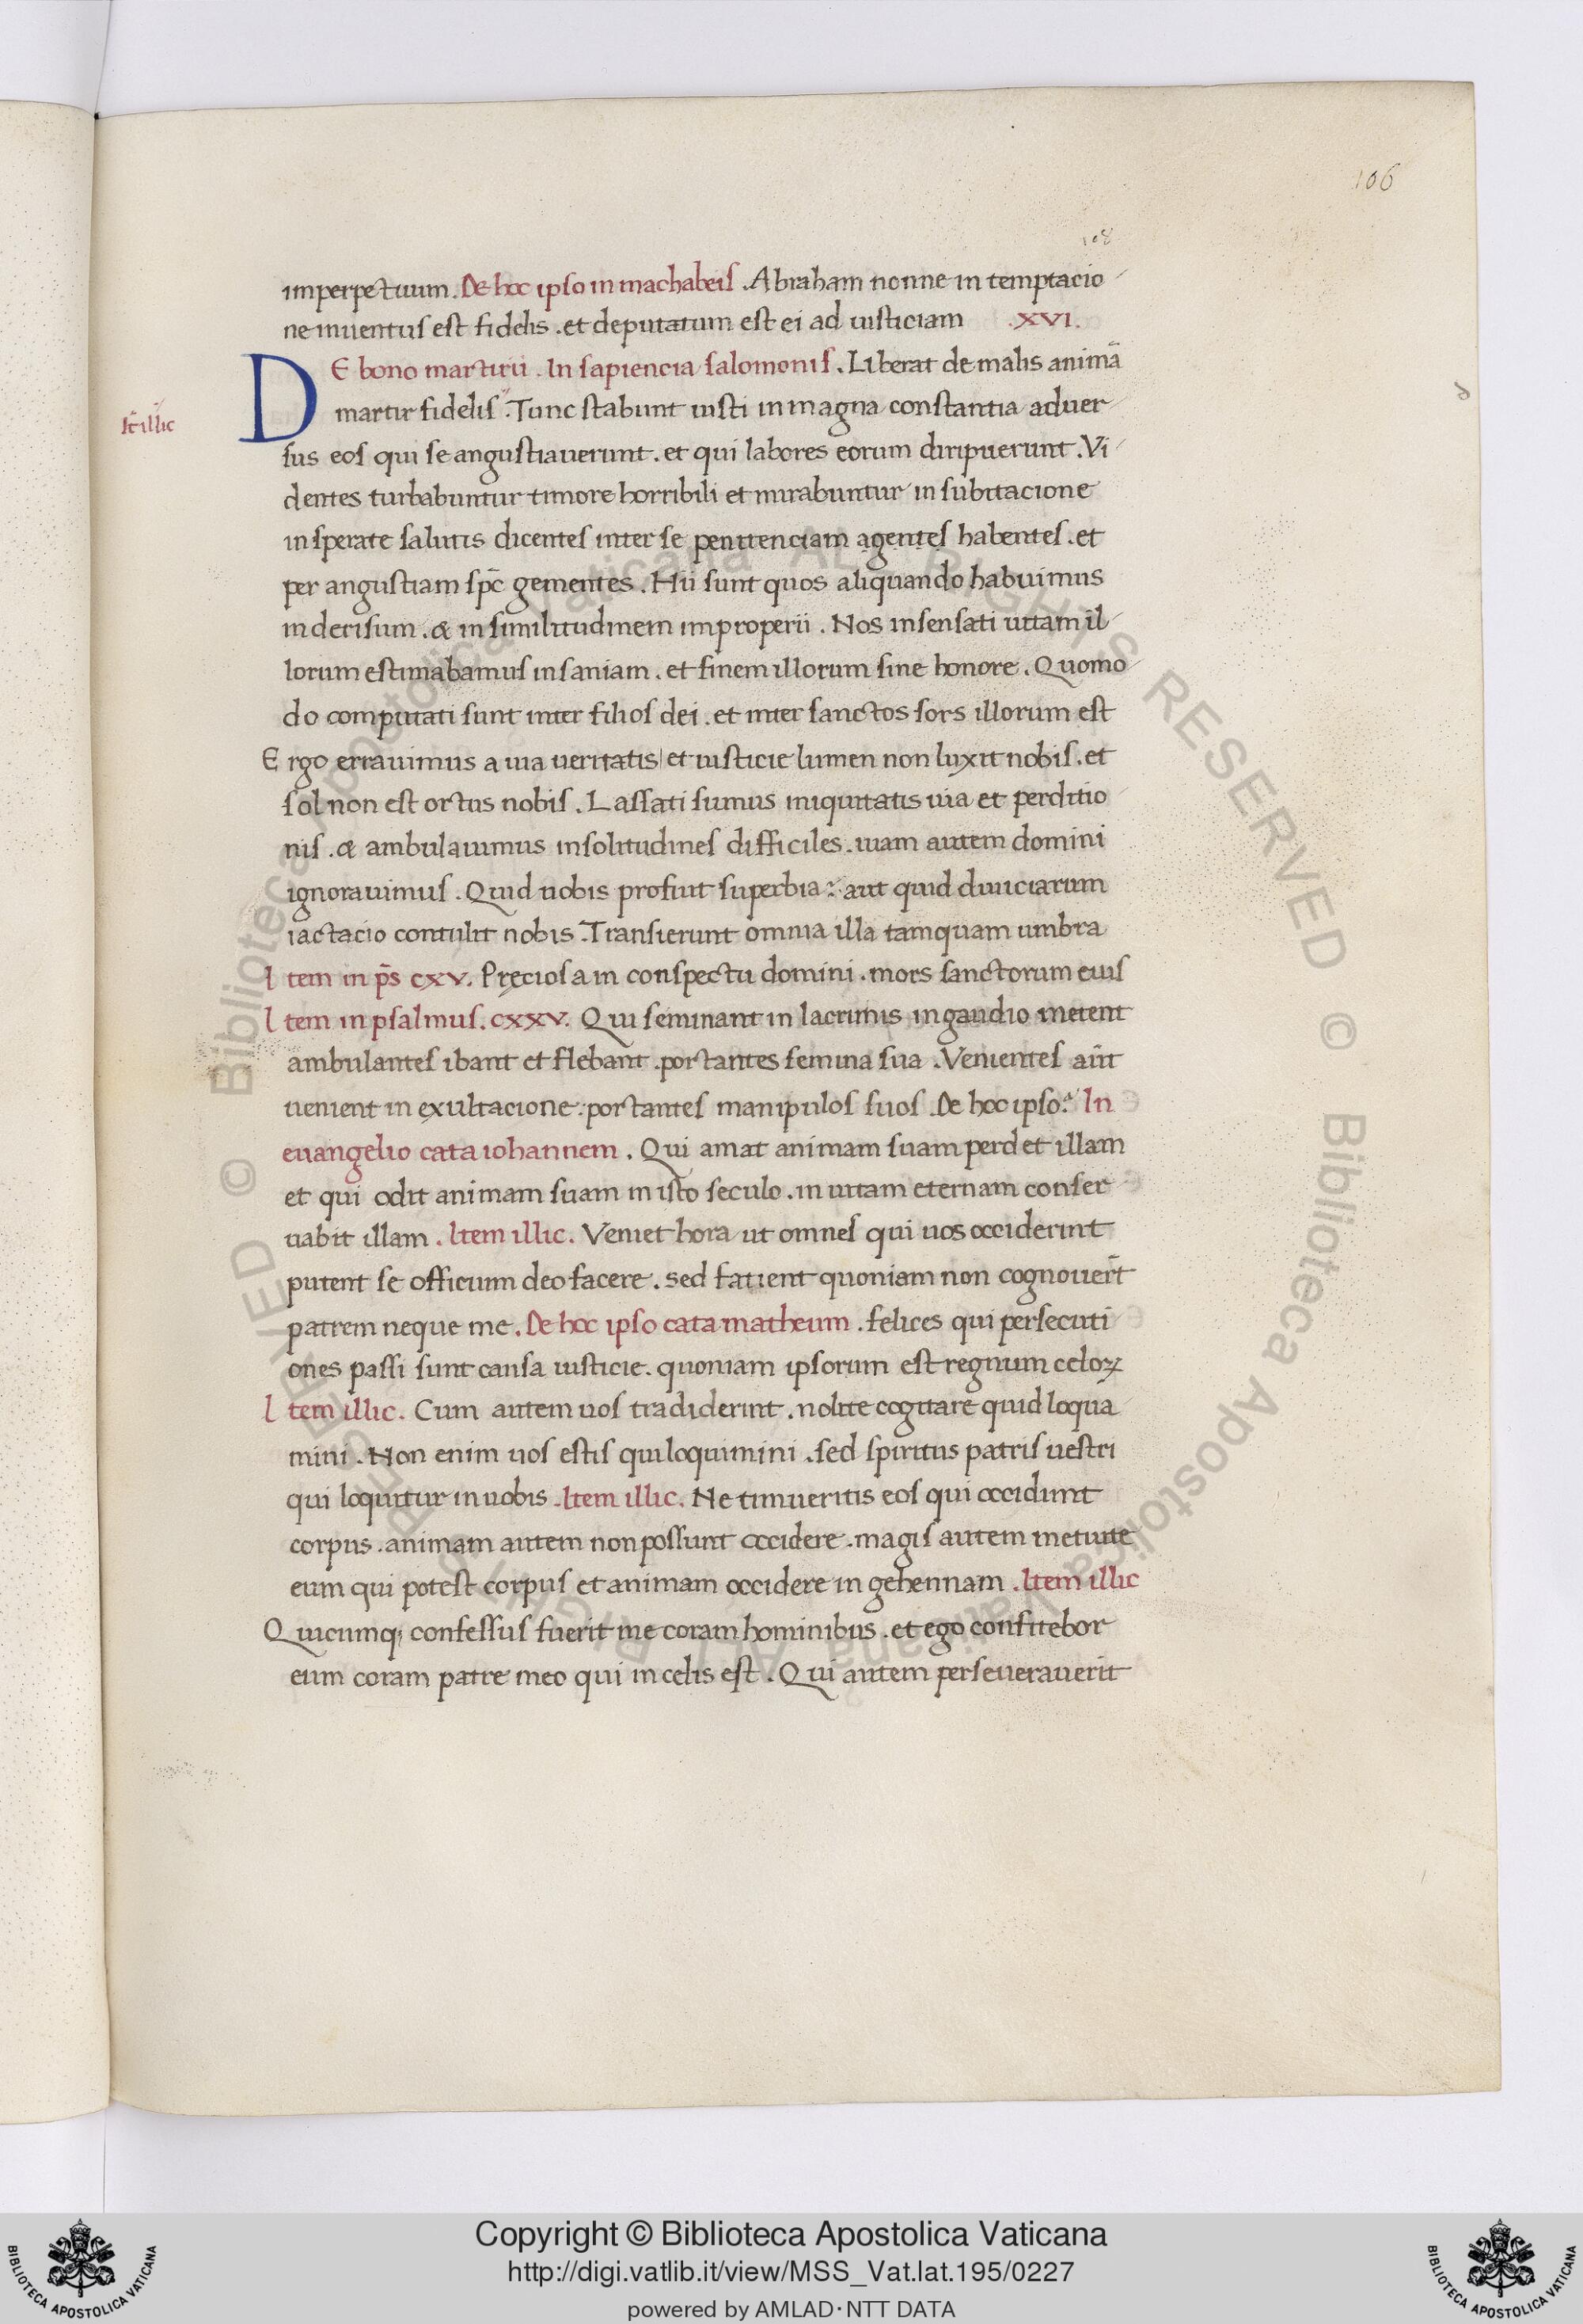 106
108
imperpetuum. De hoc ipso in machabeis. Abraham nonne in temptacio
ne inuentus est fidelis. et deputatum est ei ad iusticiam .XVI.
DE bono martirii. In sapiencia salomonis. Liberat de malis animā
Itē illic
martir fidelis. Tunc stabunt iusti in magna constantia aduer
sus eos qui se angustiauerunt. et qui labores eorum diripuerunt. Vi
dentes turbabuntur timore horribili et mirabuntur in subitacione
insperate salutis dicentes inter se penitenciam agentes habentes. et
per angustiam spc̄ gementes. Hii sunt quos aliquando habuimus
in derisum. & in similitudinem improperii. Nos insensati uitam il
lorum estimabamus insaniam. et finem illorum sine honore. Quomo
do computati sunt inter filios dei. et inter sanctos sors illorum est
Ergo errauimus a uia ueritatis et iusticie lumen non luxit nobis. et
sol non est ortus nobis. Lassati sumus iniquitatis uia et perditio
nis. & ambulauimus insolitudines difficiles. uiam autem domini
ignorauimus. Quid nobis profuit superbia: aut quid diuiciarum
iactacio contulit nobis. Transierunt omnia illa tamquam umbra
Item in ps̄ cxv. Preciosa in conspectu domini. mors sanctorum eius
Item in psalmus. cxxv. Qui seminant in lacrimis in gaudio metent
ambulantes ibant et flebant. portantes semina sua. Venientes aūt
uenient in exultacione: portantes manipulos suos. De hoc ipso. In
euangelio cata iohannem. Qui amat animam suam perdet illam
et qui odit animam suam in isto seculo. in uitam eternam conser
uabit illam. Item illic. Veniet hora ut omnes qui uos occiderint
putent se officium deo facere. sed facient quoniam non cognouer̄t
patrem neque me. De hoc ipso cata matheum. felices qui persecuti
ones passi sunt causa iusticie. quoniam ipsorum est regnum celoꝝ
Item illic. Cum autem uos tradiderint. nolite cogitare quid loqua
mini. Non enim uos estis qui loquimini. sed spiritus patris uestri
qui loquitur in uobis. Item illic. Ne timueritis eos qui occidunt
corpus. animam autem non possunt occidere. magis autem metuite
eum qui potest corpus et animam occidere in gehennam. Item illic
Quicumq; confessus fuerit me coram hominibus. et ego confitebor
eum coram patre meo qui in celis est. Qui autem perseuerauerit
© Biblioteca Apostolica Vaticana ALL RIGHTS RESERVED © Biblioteca Apostolica Vaticana ALL RIGHTS RESERVED
Copyright © Biblioteca Apostolica Vaticana
http://digi.vatlib.it/view/MSS_Vat.lat.195/0227
powered by AMLAD·NTT DATA
BIBLIOTECA APOSTOLICA VATICANA
BIBLIOTECA APOSTOLICA VATICANA